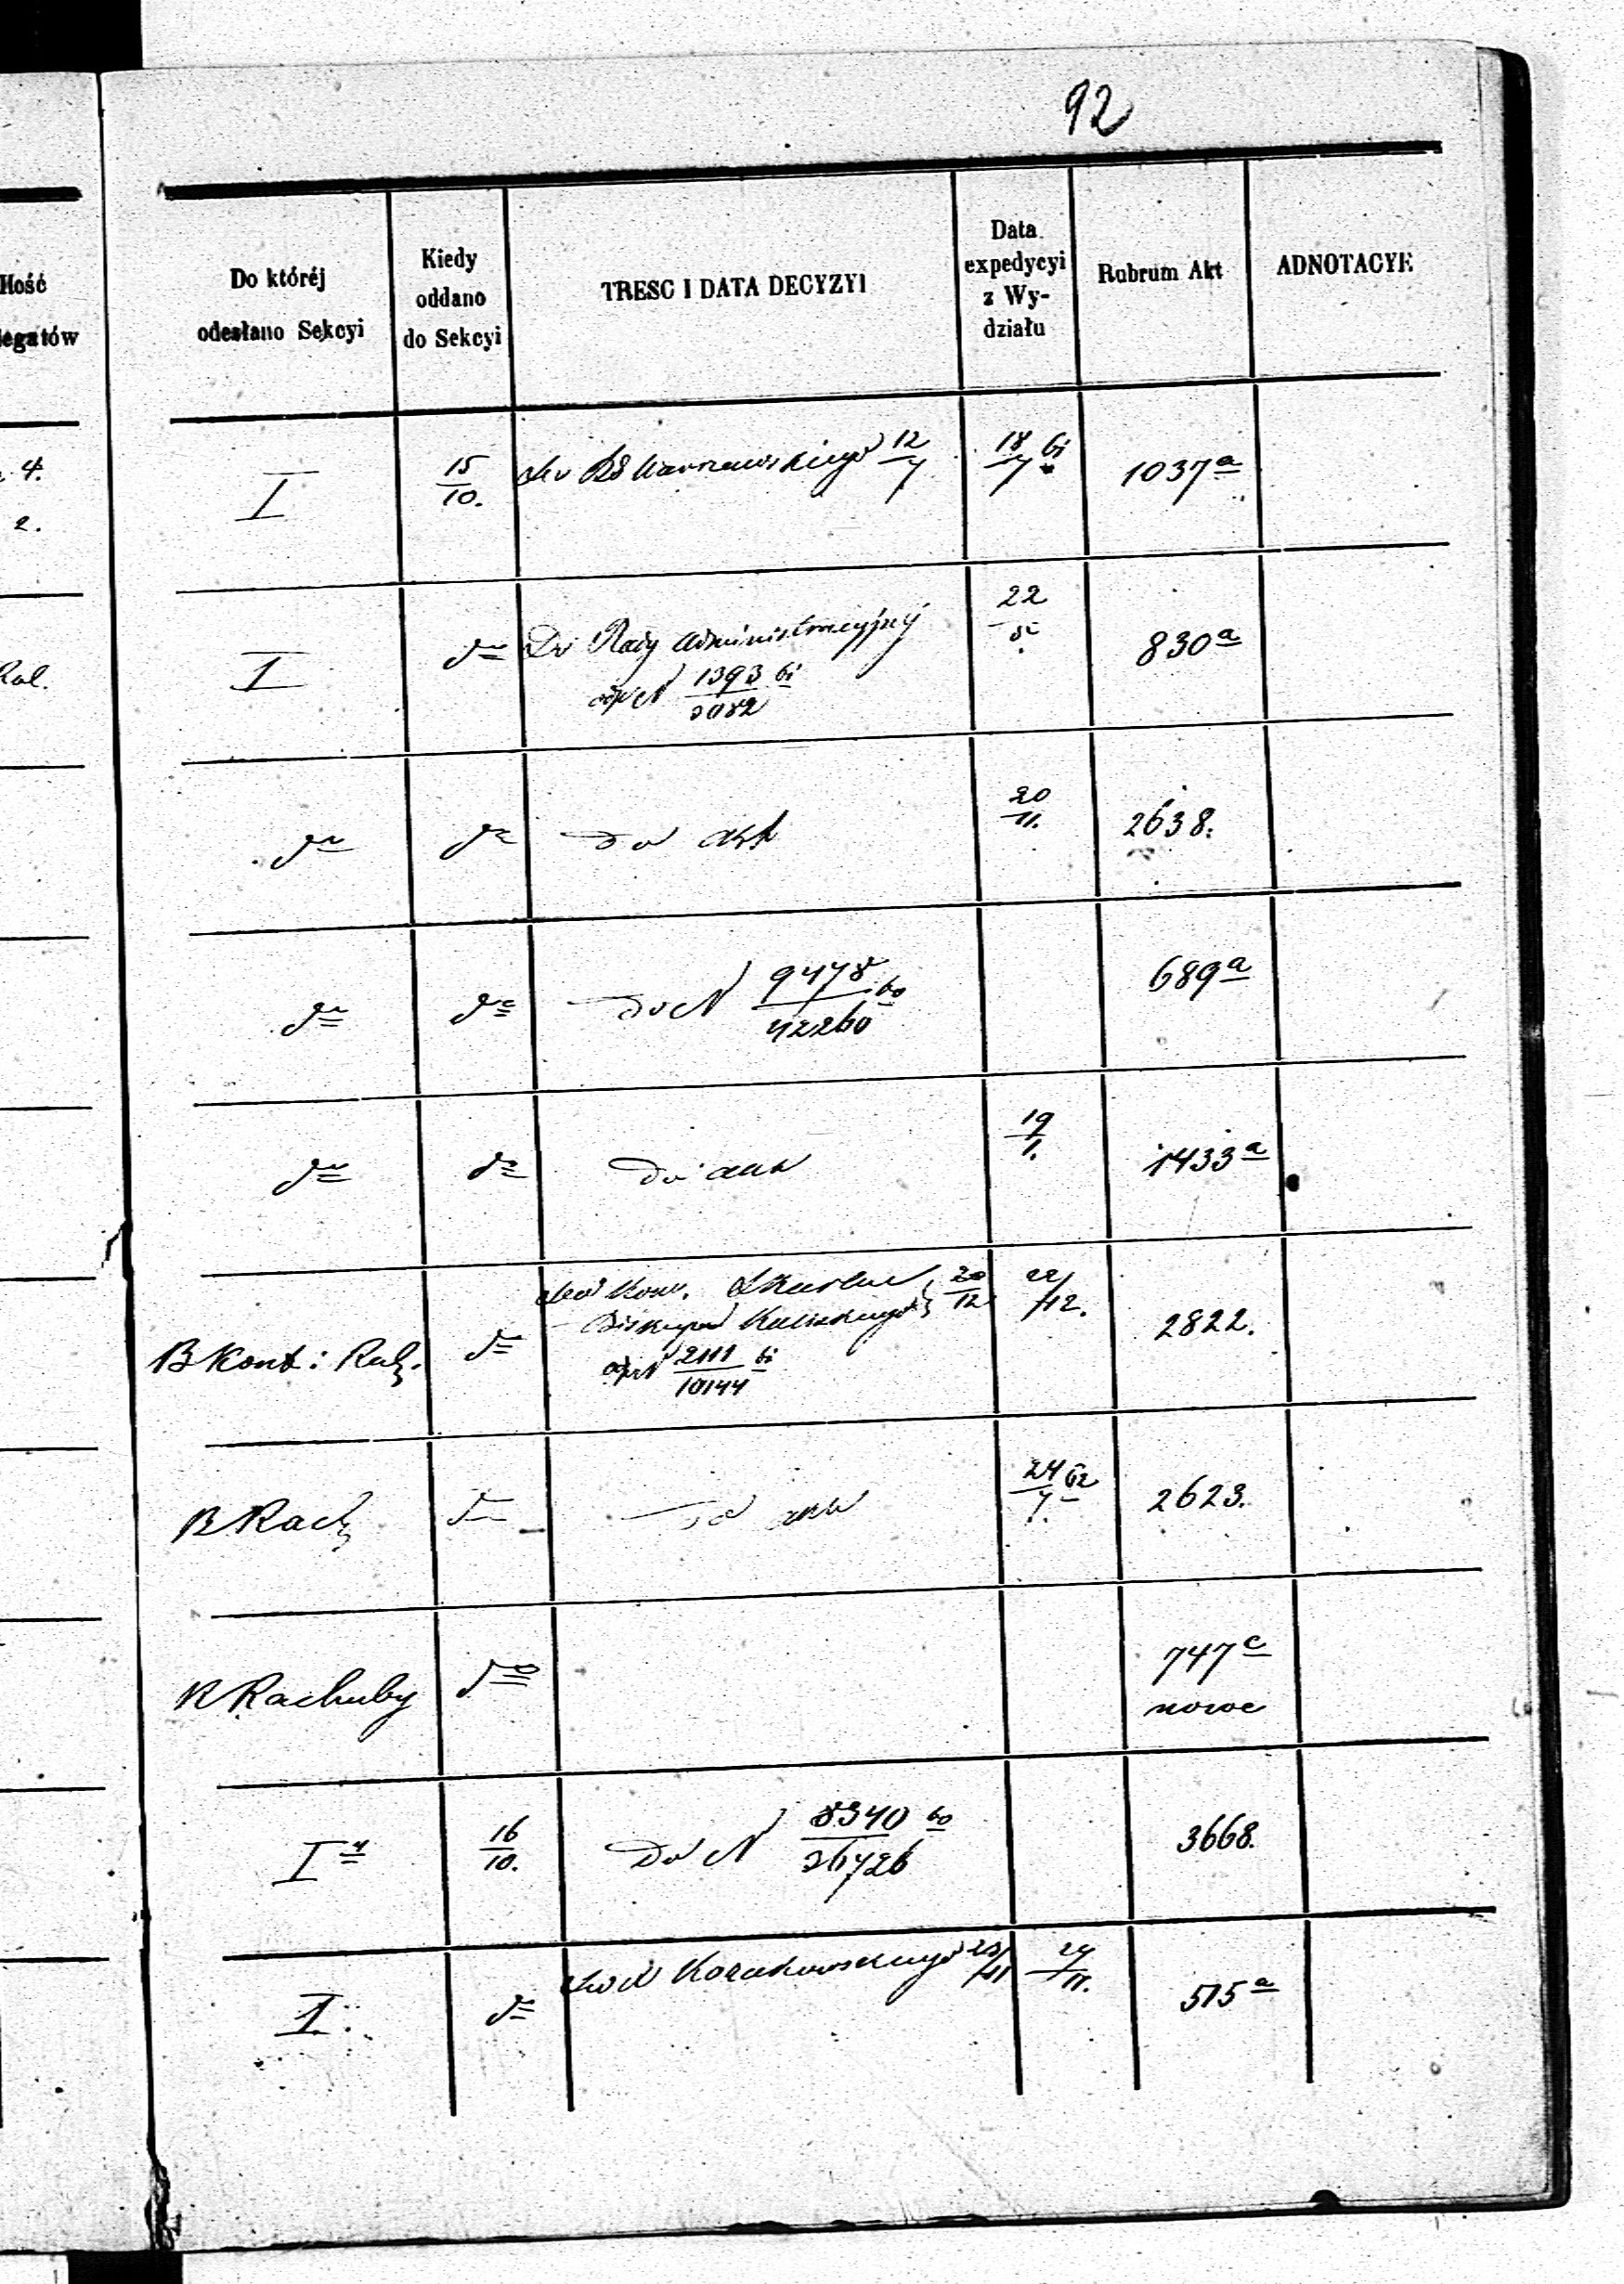 92
Ilość
legatów
Do któréj
odesłano Sekcyi
Kiedy
oddano
do Sekcyi
TRESC I DATA DECYZYI
Data
expedycyi
z Wy-
działu
Rubrum Akt
ADNOTACYE
4.
2.
I
15/10.
Warszawskiego 12/7
18/7 61
1037a
Ral.
I
do
Do Rady Administracyjnej
1393/3082 61
22
830a
do
do
do akt
20/11.
2638.
do
do
do N 9478/42260 60
689a
do
do
do akt
19/1.
1433a
B Kont: Rah.
do
20/12
Biskupa Kaliskiego
2111/10144 61
22/12.
2822.
B Rach
do
do akt
24/7. 62
2623.
R Rachuby
do
747c
nowe
I
16/10.
Do N 8340/26726 60
3668.
I
do
29/11.
515a